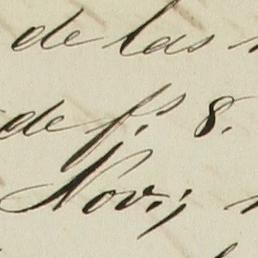 de las
de f.s 8.
Nov.;